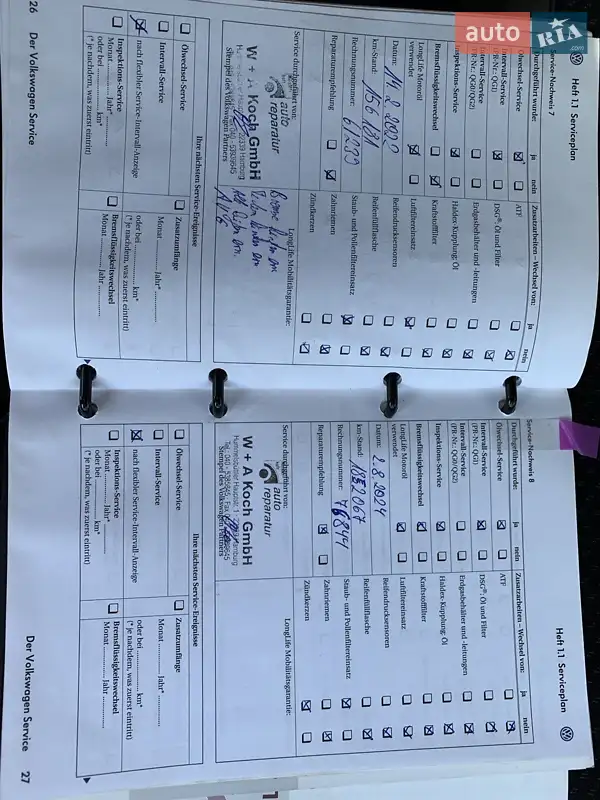 auto
RIA
.com
Heft 1.1 Serviceplan
Service-Nachweis 7
Durchgeführt wurde:
ja
nein
Ölwechsel-Service
Intervall-Service
(PR-Nr.: QG1)
Intervall-Service
(PR-Nr.: QG0/QG2)
Inspektions-Service
Bremsflüssigkeitswechsel
LongLife Motoröl
verwendet
Datum: 14.2.2022
km-Stand: 156181
Rechnungsnummer: 61299
Reparaturempfehlung
Service durchgeführt von:
auto
reparatur
W + A Koch GmbH
Stempel des Volkswagen Partners
Zusatzarbeiten – Wechsel von:
ja
nein
ATF
DSG®: Öl und Filter
Erdgasbehälter und -leitungen
Haldex-Kupplung: Öl
Kraftstofffilter
Luftfiltereinsatz
Reifendrucksensoren
Reifenfüllflasche
Staub- und Pollenfiltereinsatz
Zahnriemen
Zündkerzen
LongLife Mobilitätsgarantie:
Ihre nächsten Service-Ereignisse
Ölwechsel-Service
Intervall-Service
nach flexibler Service-Intervall-Anzeige
Inspektions-Service
Monat ............ Jahr* ............
oder bei ............ km*
(* je nachdem, was zuerst eintritt)
Zusatzumfänge
Monat ............ Jahr* ............
oder bei ............ km*
(* je nachdem, was zuerst eintritt)
Bremsflüssigkeitswechsel
Monat ............ Jahr ............
26 Der Volkswagen Service
Heft 1.1 Serviceplan
Service-Nachweis 8
Durchgeführt wurde:
ja
nein
Ölwechsel-Service
Intervall-Service
(PR-Nr.: QG1)
Intervall-Service
(PR-Nr.: QG0/QG2)
Inspektions-Service
Bremsflüssigkeitswechsel
LongLife Motoröl
verwendet
Datum: 2.8.2024
km-Stand:
Rechnungsnummer:
Reparaturempfehlung
Service durchgeführt von:
auto
reparatur
W + A Koch GmbH
Stempel des Volkswagen Partners
Zusatzarbeiten – Wechsel von:
ja
nein
ATF
DSG®: Öl und Filter
Erdgasbehälter und -leitungen
Haldex-Kupplung: Öl
Kraftstofffilter
Luftfiltereinsatz
Reifendrucksensoren
Reifenfüllflasche
Staub- und Pollenfiltereinsatz
Zahnriemen
Zündkerzen
LongLife Mobilitätsgarantie:
Ihre nächsten Service-Ereignisse
Ölwechsel-Service
Intervall-Service
nach flexibler Service-Intervall-Anzeige
Inspektions-Service
Monat ............ Jahr* ............
oder bei ............ km*
(* je nachdem, was zuerst eintritt)
Zusatzumfänge
Monat ............ Jahr* ............
oder bei ............ km*
(* je nachdem, was zuerst eintritt)
Bremsflüssigkeitswechsel
Monat ............ Jahr ............
Der Volkswagen Service 27